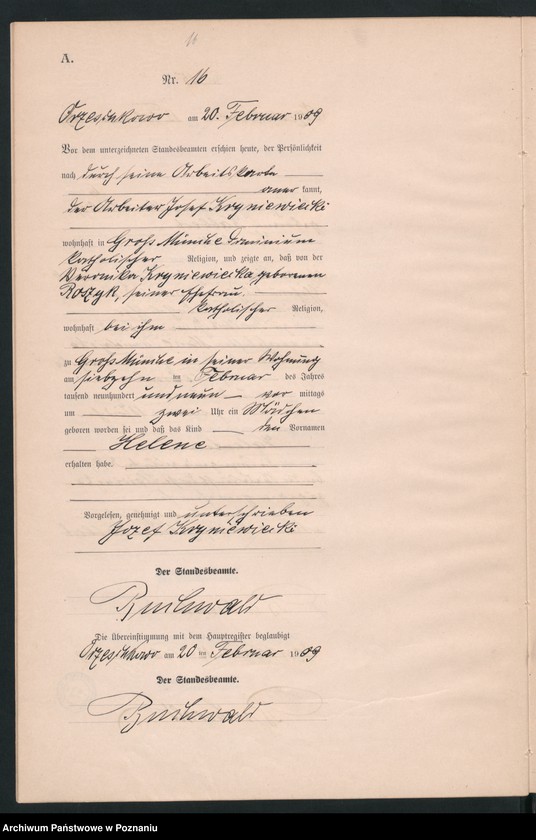 16
A.
Nr. 16
Orzeschkowo am 20. Februar 1909
Vor dem unterzeichneten Standesbeamten erschien heute, der Persönlichkeit
nach durch seine Arbeitskarte
aner kannt,
der Arbeiter Josef Kryniewiecki
wohnhaft in Groß Münche Dominium
katholischer Religion, und zeigte an, daß von der
Veronika Kryniewiecka geborenen
Roszyk, seiner Ehefrau.
katholischer Religion,
wohnhaft bei ihm
zu Groß Münche in seiner Wohnung
am siebzehn ten Februar des Jahres
tausend neunhundert und neun vor mittags
um zwei Uhr ein Mädchen
geboren worden sei und daß das Kind den Vornamen
Helene
erhalten habe.
Vorgelesen, genehmigt und unterschrieben
Jozef Kryniewiecki
Der Standesbeamte.
Buchwald
Die Übereinstimmung mit dem Hauptregister beglaubigt
Orzeschkowo am 20 ten Februar 1909
Der Standesbeamte.
Buchwald
Archiwum Państwowe w Poznaniu